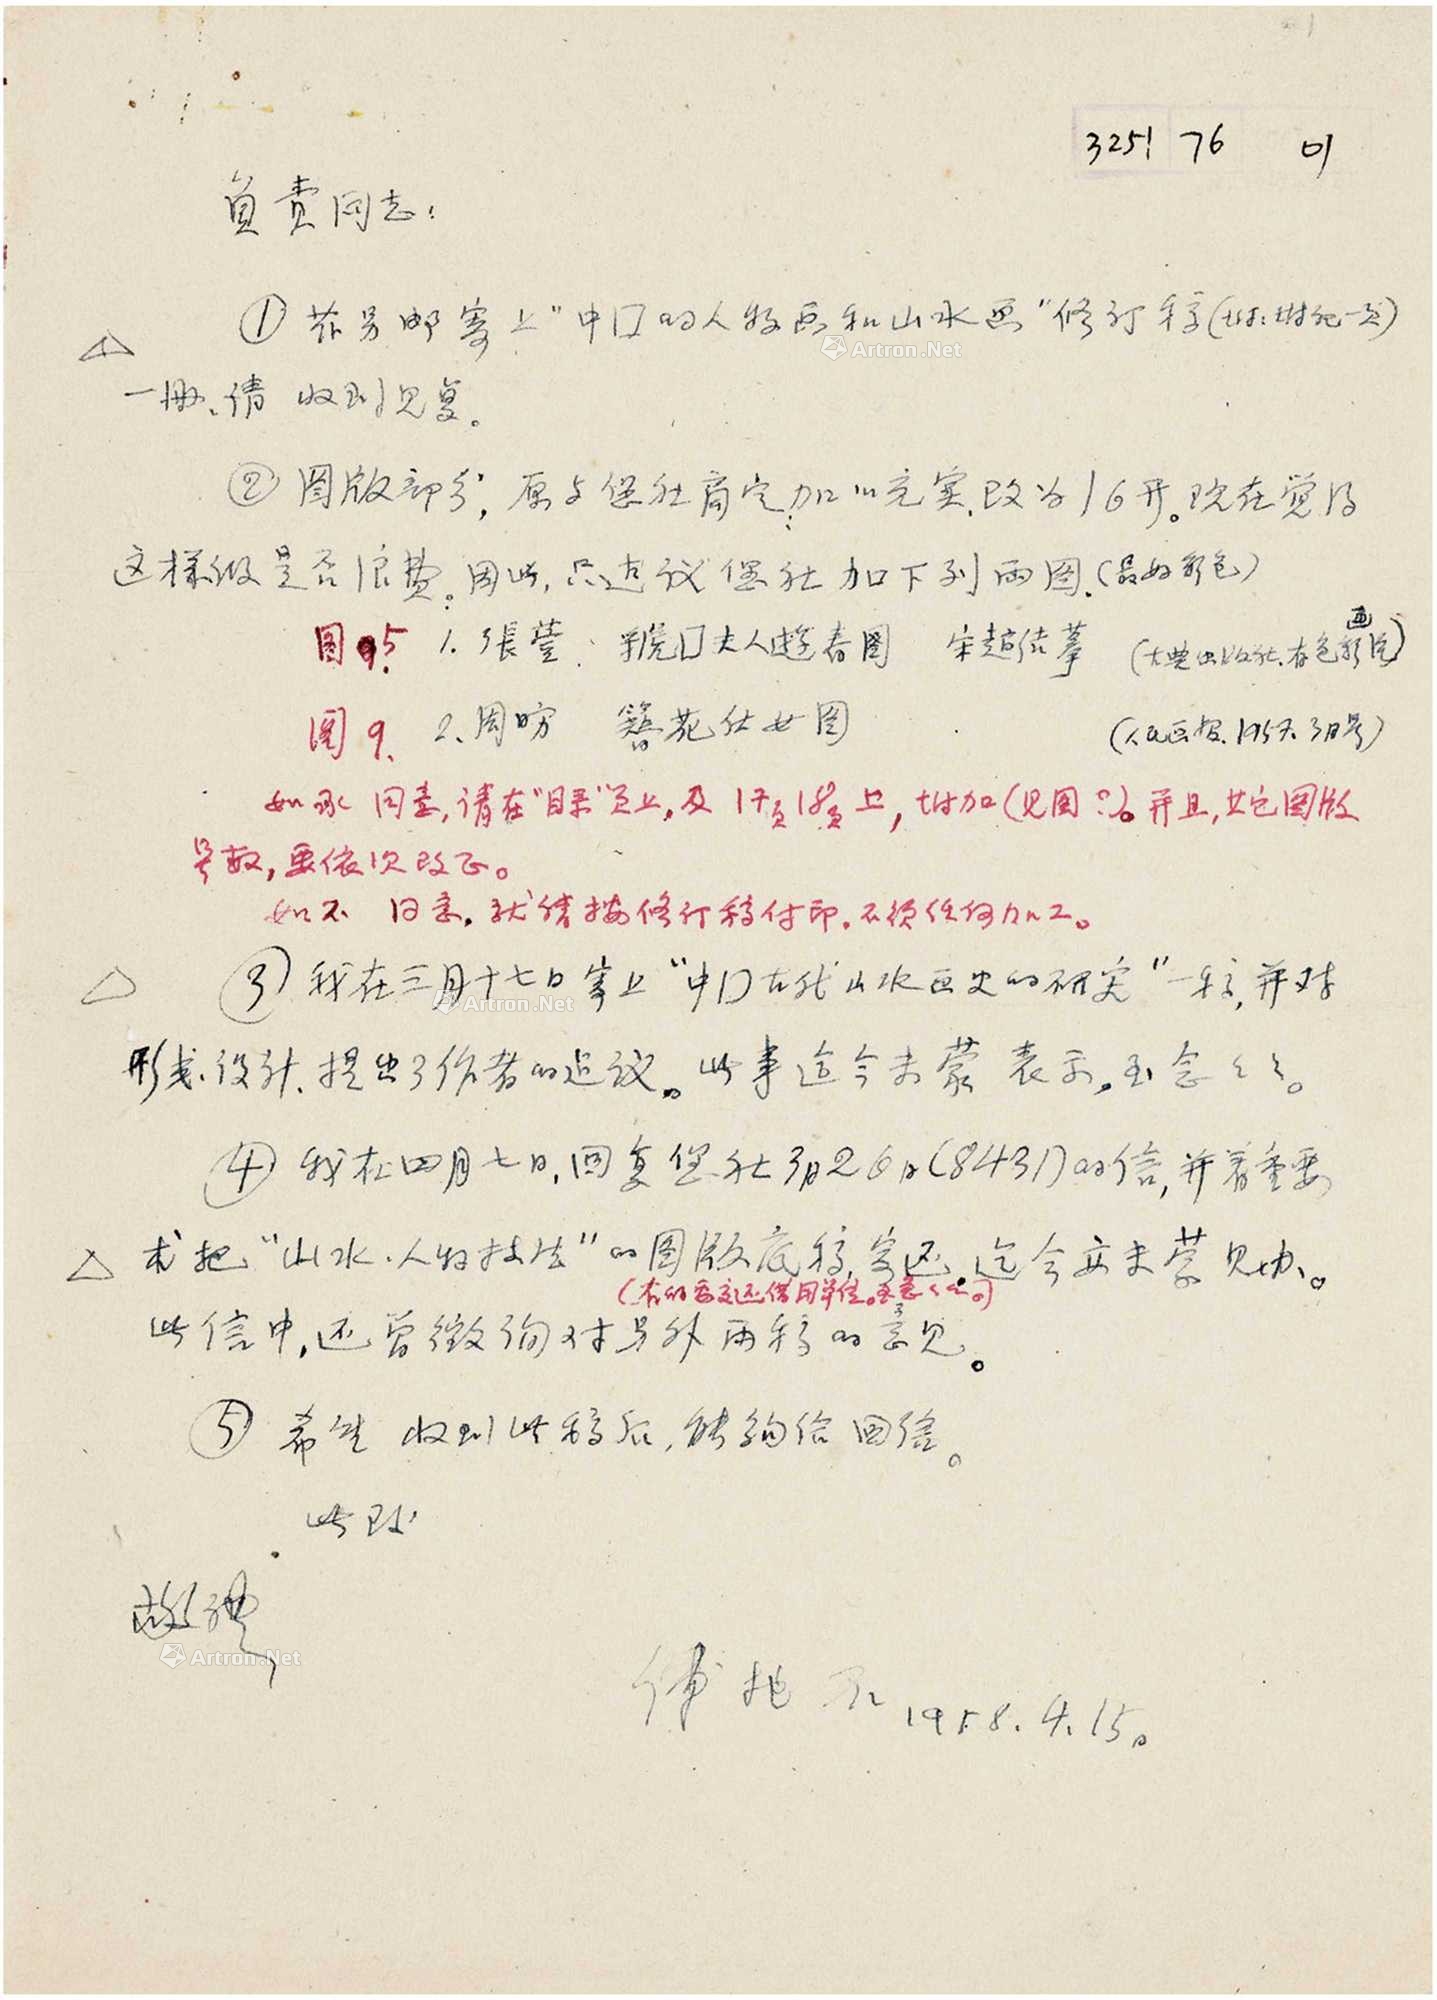 3251 76 01
负责同志：
① 兹另邮寄上"中囗的人物画和山水画"修订稿（附：附记一页）
一册、请 收到见复。
② 图版部分，原与您社商定，加以充实，改为16开。现在觉得
这样做是否浪费。因此，只建议您社加下列两图。（最好彩色）
图5 1. 張萱：虢囗夫人遊春图 宋趙佶摹 （古典出版社、有色彩画片）
图9. 2. 周昉 簪花仕女图 （人民画报、1957. 3月号）
如承 同意，请在"目录"页上，及17页18页上，附加（见图？）。并且，其它图版
号数，要依次改正。
如不 同意，就请按修订稿付印，不须任何加工。
③ 我在三月十七日寄上"中囗古代山水画史的研究"一稿，并对
形式、设计、提出了作者的建议。此事迄今未蒙 表示，至念々々。
④ 我在四月七日，回复您社3月26日（8431）的信，并着重要
求把"山水·人物技法"的图版底稿，寄还。迄今亦未蒙见办。
（有的要交还借用单位。至念々々。）
此信中，还曾徵询对另外两稿的意见。
⑤ 希望 收到此稿后，能夠给回信。
此致
敬礼
傅抱石 1958.4.15。
Artron.Net
Artron.Net
Artron.Net